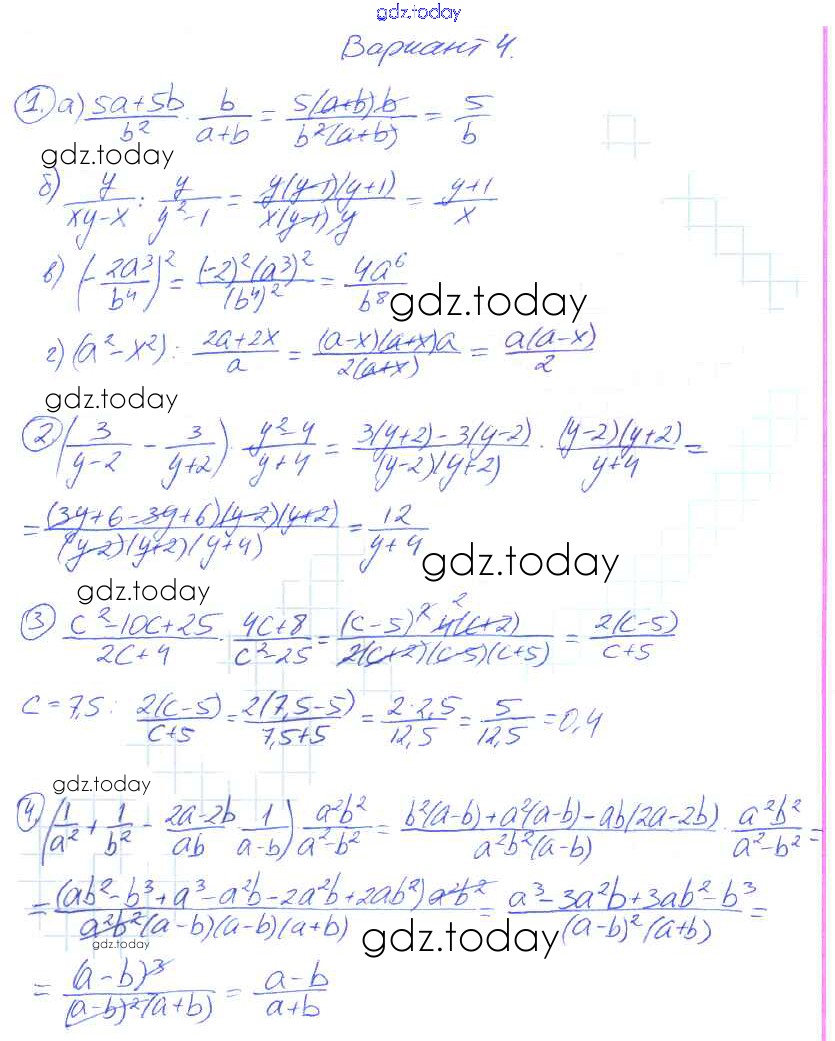 gdz.today
Вариант 4.
1. а) (5a+5b)/b² · b/(a+b) = (5(a+b)b)/(b²(a+b)) = 5/b
gdz.today
б) y/(xy-x) : y/(y²-1) = (y(y-1)(y+1))/(x(y-1)y) = (y+1)/x
в) (-2a³/b⁴)² = ((-2)²(a³)²)/(b⁴)² = 4a⁶/b⁸
gdz.today
г) (a²-x²) : (2a+2x)/a = ((a-x)(a+x)a)/(2(a+x)) = a(a-x)/2
gdz.today
2. (3/(y-2) - 3/(y+2)) · (y²-4)/(y+4) = (3(y+2)-3(y-2))/((y-2)(y+2)) · ((y-2)(y+2))/(y+4) =
= ((3y+6-3y+6)(y-2)(y+2))/((y-2)(y+2)(y+4)) = 12/(y+4)
gdz.today
gdz.today
3 (c²-10c+25)/(2c+4) · (4c+8)/(c²-25) = ((c-5)² 2 4(c+2))/(2(c+2)(c-5)(c+5)) = 2(c-5)/(c+5)
c = 7,5: 2(c-5)/(c+5) = 2(7,5-5)/(7,5+5) = 2·2,5/12,5 = 5/12,5 = 0,4
gdz.today
4. (1/a² + 1/b² - (2a-2b)/ab · 1/(a-b)) a²b²/(a²-b²) = (b²(a-b)+a²(a-b)-ab(2a-2b))/(a²b²(a-b)) · a²b²/(a²-b²) =
= ((ab²-b³+a³-a²b-2a²b+2ab²)a²b²)/(a²b²(a-b)(a-b)(a+b)) = (a³-3a²b+3ab²-b³)/((a-b)²(a+b)) =
gdz.today
gdz.today
= (a-b)³/((a-b)²(a+b)) = (a-b)/(a+b)